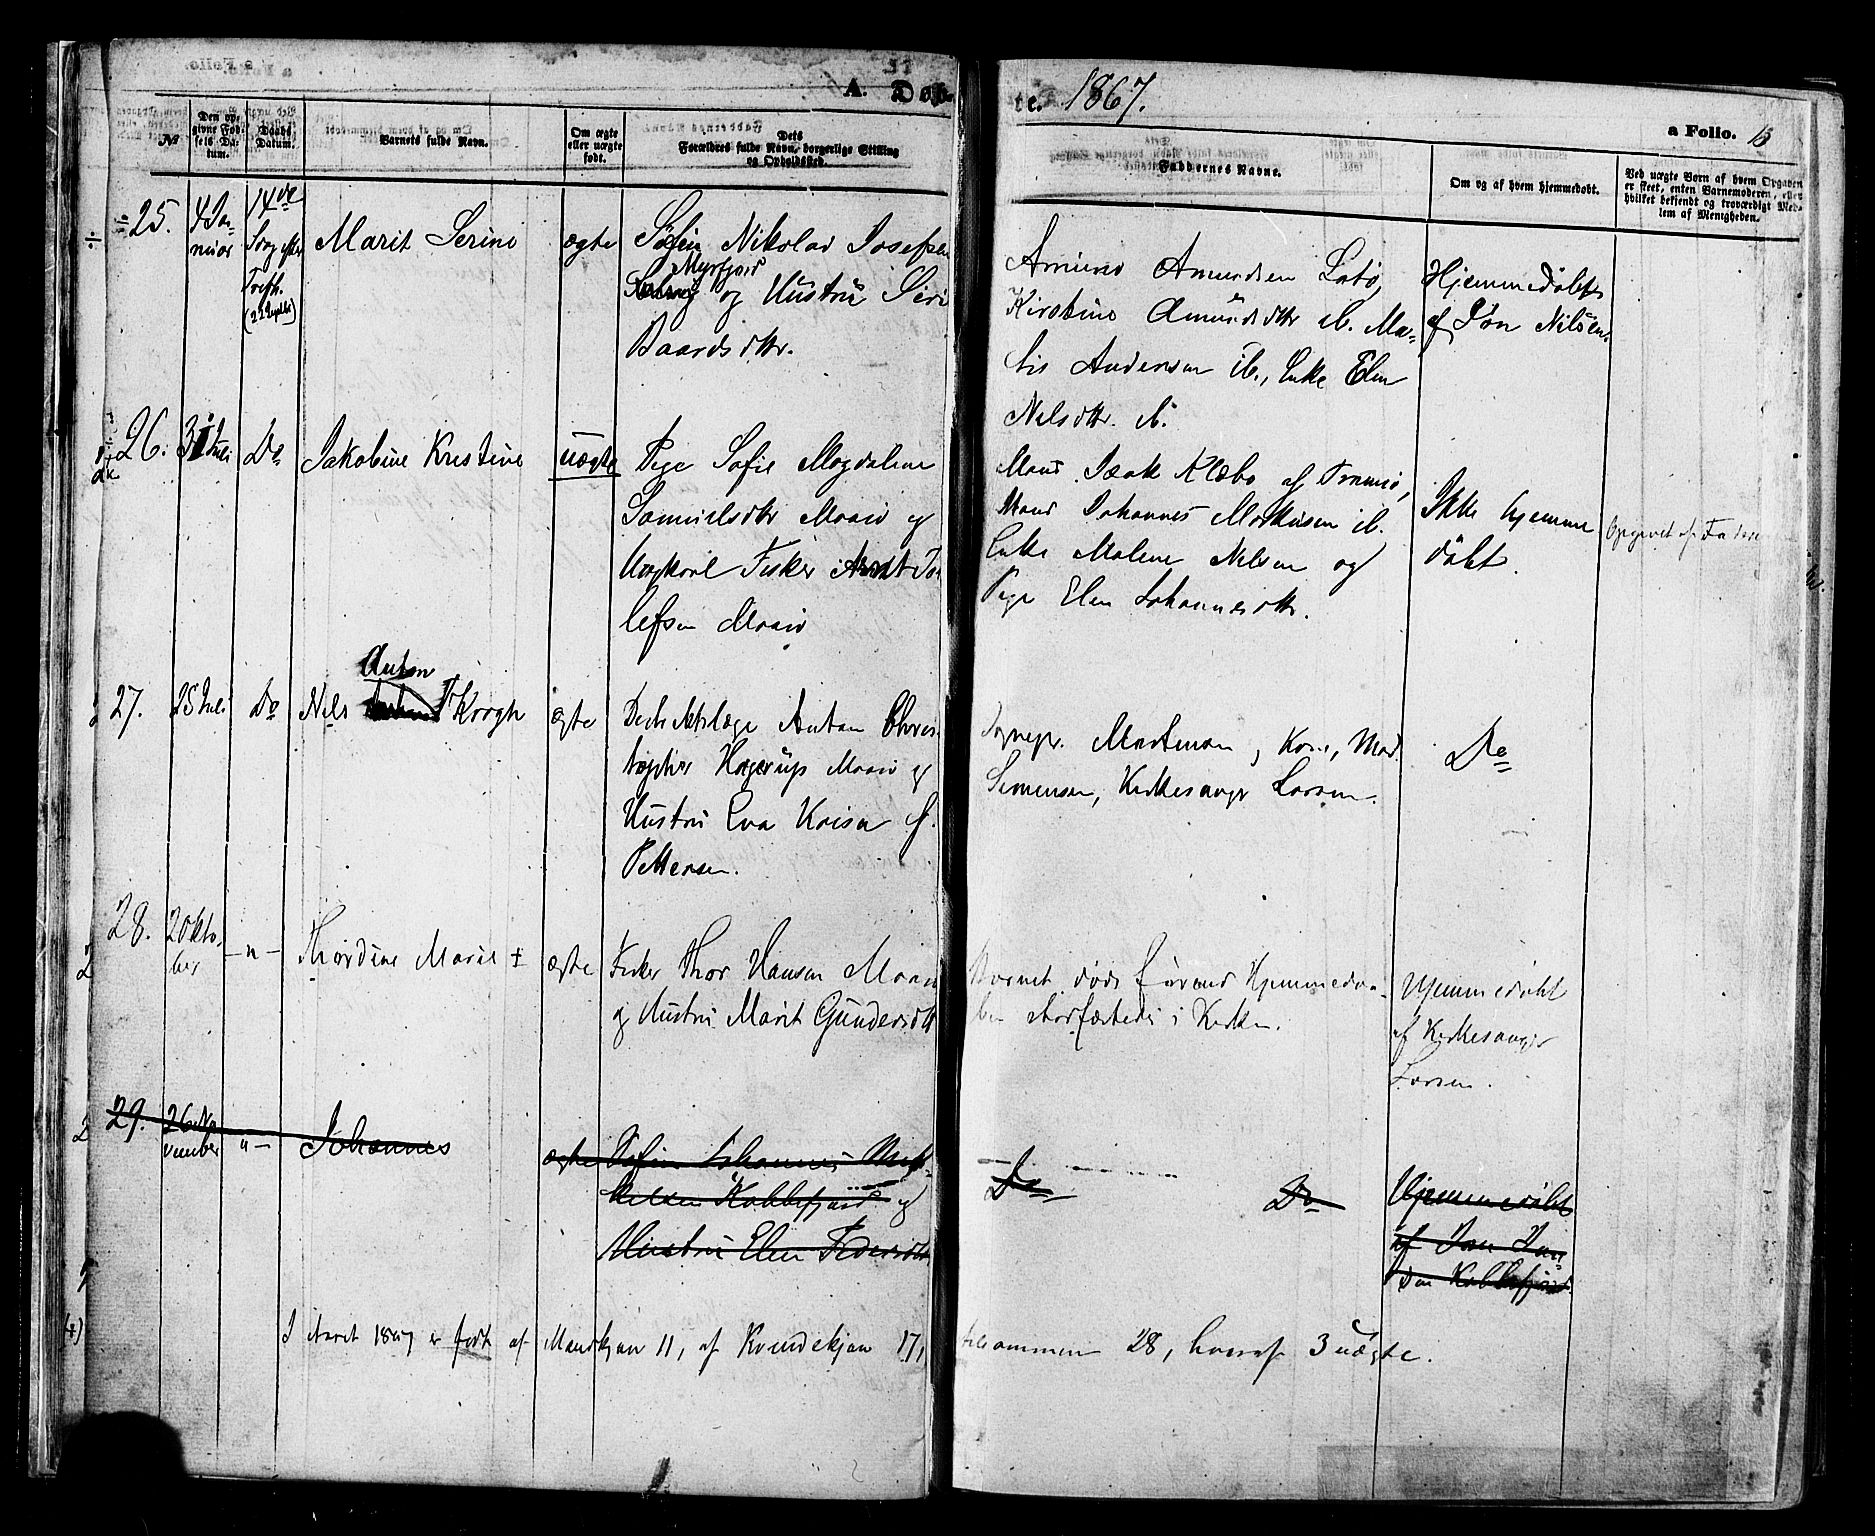 A. Døb-
te. 1867.
a Folio. 13
№
Den op-
givne Fød-
sels Da-
tum.
Daabs
Datum.
Barnets fulde Navn.
Om ægte
eller uægte
født.
Dets
Forældres fulde Navn, borgerlige Stilling
og Opholdssted.
Faddernes Navne.
Om og af hvem hjemmedøbt.
Ved uægte Børn af hvem Opgaven
er skeet, enten Barnemoderen, eller
hvilket bekjendt og troværdigt Med-
lem af Menigheden.
÷ 25.
4 Ja-
nuar
14de
Søng efter
Trefh.
Marit Serine
ægte
Søfin Nikolai Josefsen
Myrfjord
og Hustru Siri
Baardsdtr.
Amund Amundsen Latø,
Kirstine Amundsdtr ib. Ma-
tis Andersen ib., Enke Elen
Nilsdtr. ib.
Hjemmedøbt
af Jon Nilsen.
26.
31 Juli
Do
Jakobine Kristine
uægte
Pige Sofie Magdalene
Samuelsdtr Maasø og
Ungkarl Fisker Arndt To-
lefsen Maasø
Mand Isak Klæbo af Tromsø,
Mand Johannes Markusen ib.
Enke Malene Nilsen og
Pige Elen Johannesdtr.
Ikke hjemme
døbt.
Opgivet af Faderen
27.
25 Juli
Do
Anton
Nils Krogh
ægte
Distriktslæge Anton Chris-
topher Hagerup Maasø og
Hustru Eva Kaisa f.
Pettersen.
Sognepr. Mortensen, Kone, Mad.
Simensen, Kirkesanger Larsen.
Do
28.
2 Okto-
ber
-"-
Thordine Marie ‡
ægte
Fisker Thor Hansen Maasø
og Hustru Marit Gundersdtr
Barnet døde førend Hjemmedaa-
ben stadfæstedes i Kirken.
Hjemmedøbt
af Kirkesanger
Larsen.
29.
26 No
vember
"-
Johannes
ægte
Søfin Johannes Mik-
kelsen Kobbefjord og
Hustru Elen Pedersdtr
Do
Do
Hjemmedøbt
af Jon Jon-
sen Kobbefjord
I Aaret 1867 er født af Mandkjøn 11, af Kvindekjøn 17,
tilsammen 28, hvoraf 3 uægte.